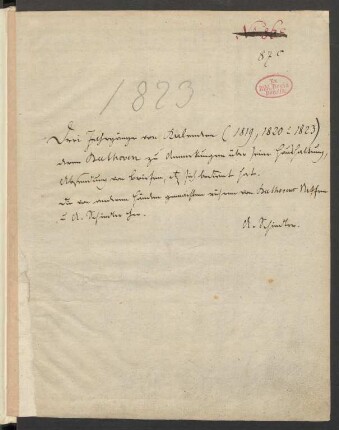 87c
1823
Drei Jahrgänge von Kalender (1819, 1820 & 1823)
deren Beethoven zu Anmerkungen über seine Haushaltung,
Absendung von Briefen, etc sich bedient hat.
Die von anderen Händen gemachten rühren von Beethovens Neffen
u A. Schindler her.
A. Schindler.